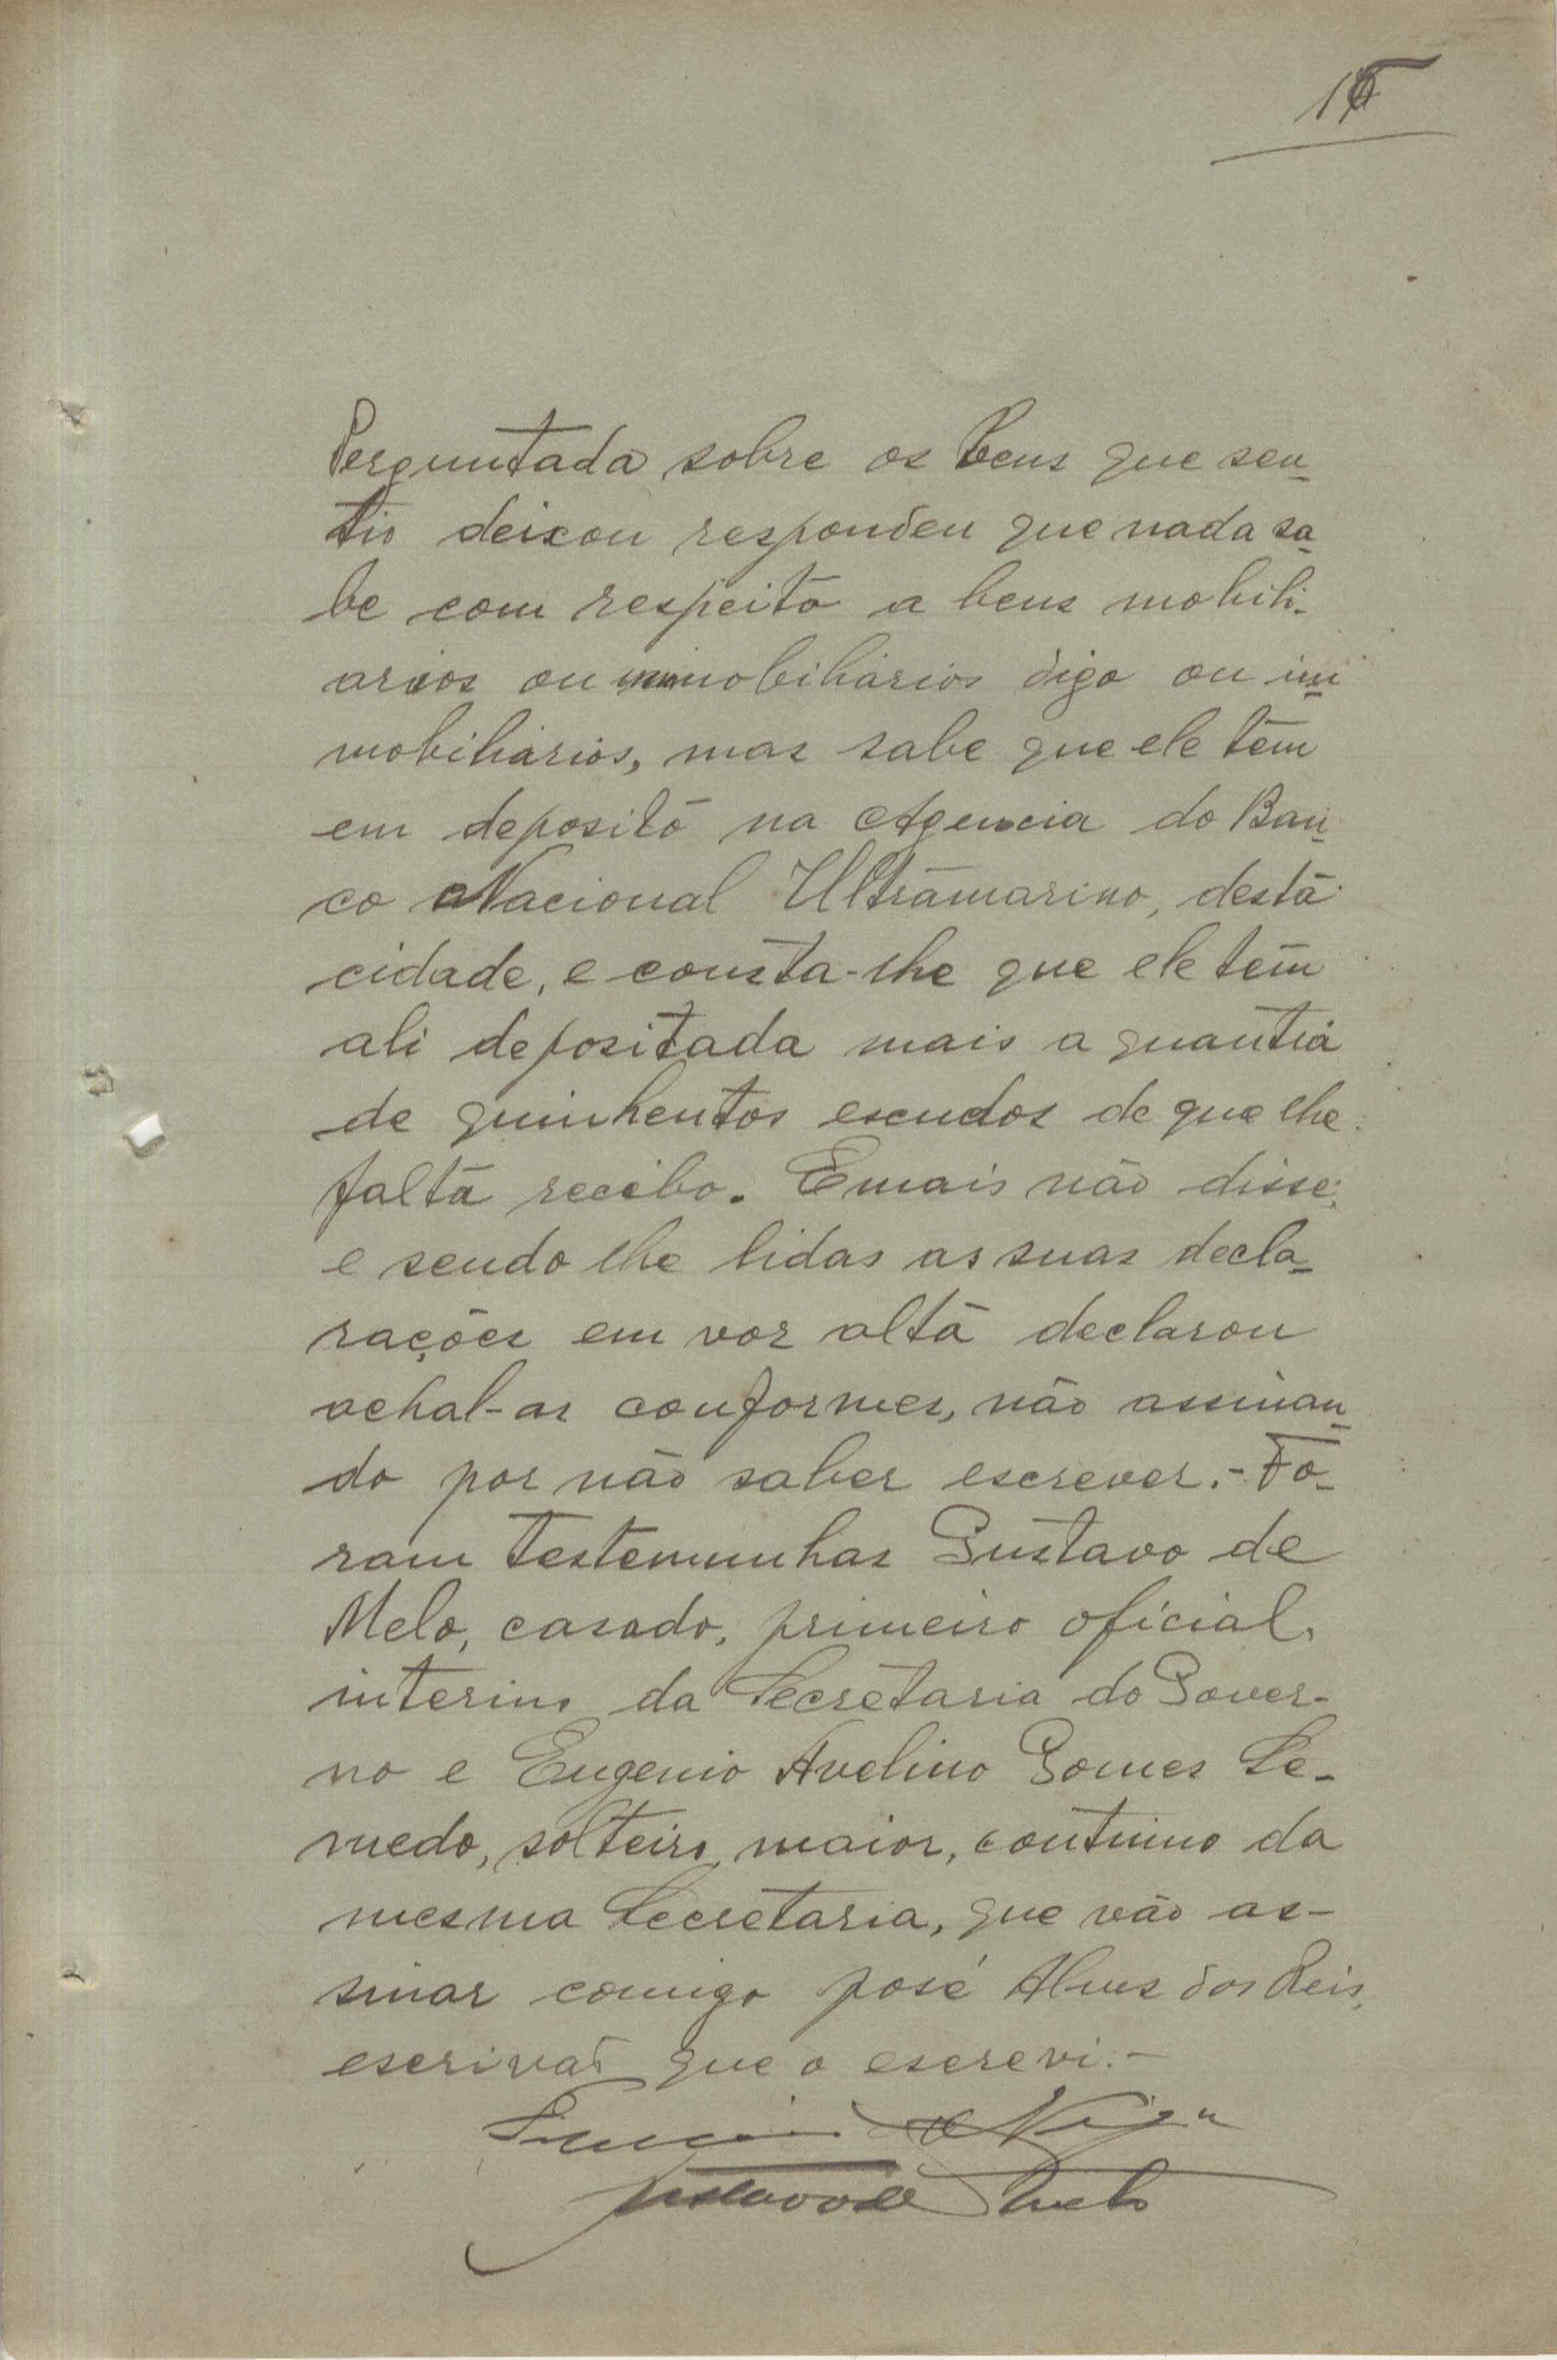 Perguntada sobre os bens que seu
tio deixou respondeu que nada sa
be com respeito a bens mobili-
arios ou immobiliarios digo ou im
mobiliarios, mas sabe que ele tem
em deposito na Agencia do Ban
co Nacional Ultramarino, desta
cidade, e consta-lhe que ele tem
ali depositada mais a quantia
de quinhentos escudos de que lhe
falta recibo. E mais não disse;
e sendo lhe lidas as suas decla-
rações em voz alta declarou
achal-as conformes, não assinan
do por não saber escrever.- Fo-
ram testemunhas Gustavo de
Melo, casado, primeiro oficial,
interino da Secretaria do Gover-
no e Eugenio Avelino Gomes Se-
medo, solteiro, maior, continuo da
mesma Secretaria, que vão as-
sinar comigo José Alves dos Reis,
escrivão que o escrevi.-
Gustavo de Melo